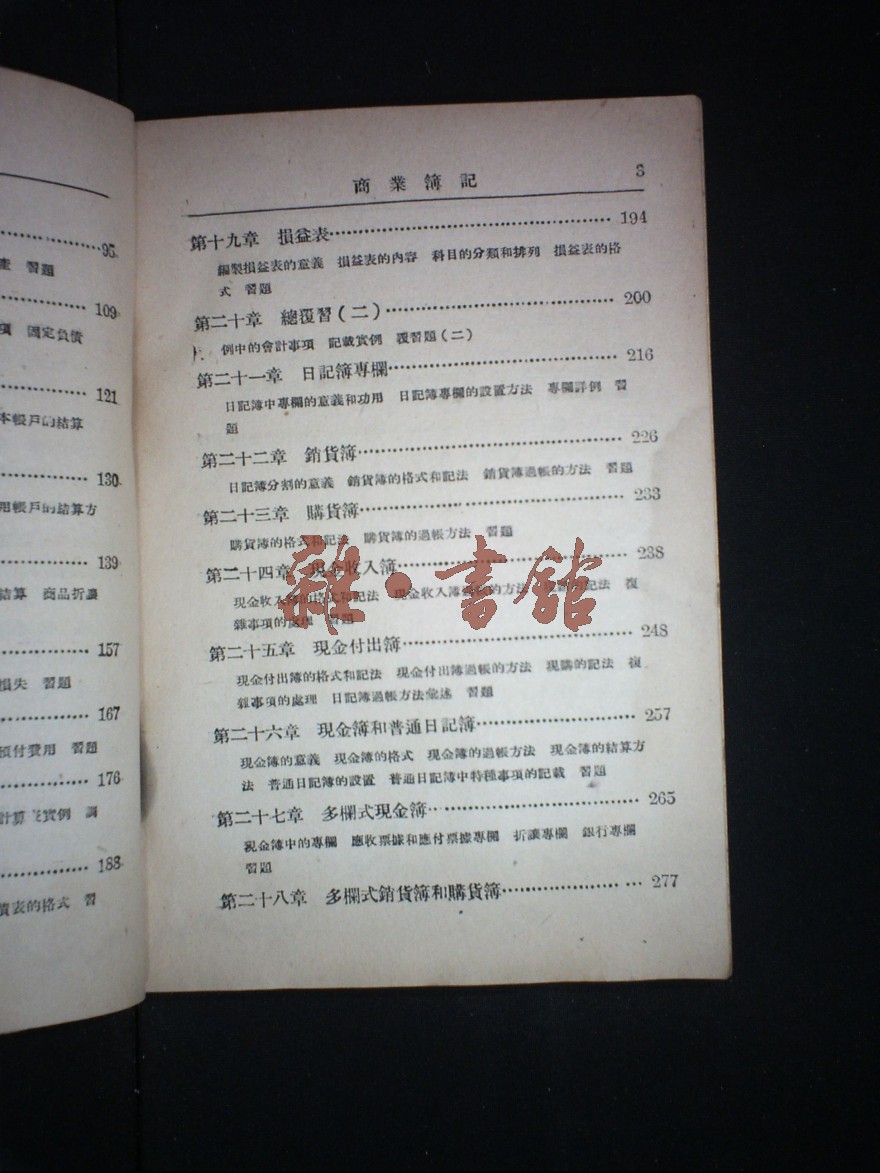 95
產 習題
109
項 固定負債
121
本帳戶的結算
130
用帳戶的結算方
139
結算 商品折讓
157
損失 習題
167
預付費用 習題
176
計算 實例
188
債表的格式 習
商業簿記 3
第十九章 損益表 194
編製損益表的意義 損益表的內容 科目的分類和排列 損益表的格
式 習題
第二十章 總覆習(二) 200
例中的會計事項 記載實例 覆習題(二)
第二十一章 日記簿專欄 216
日記簿中專欄的意義和功用 日記簿專欄的設置方法 專欄詳例 習
題
第二十二章 銷貨簿 226
日記簿分割的意義 銷貨簿的格式和記法 銷貨簿過帳的方法 習題
第二十三章 購貨簿 233
購貨簿的格式和記法 購貨簿的過帳方法 習題
第二十四章 現金收入簿 238
現金收入簿的格式和記法 現金收入簿過帳的方法 記法 複
雜事項的處理 習題
雜·書館
第二十五章 現金付出簿 248
現金付出簿的格式和記法 現金付出簿過帳的方法 現購的記法 複
雜事項的處理 日記簿過帳方法彙述 習題
第二十六章 現金簿和普通日記簿 257
現金簿的意義 現金簿的格式 現金簿的過帳方法 現金簿的結算方
法 普通日記簿的設置 普通日記簿中特種事項的記載 習題
第二十七章 多欄式現金簿 265
現金簿中的專欄 應收票據和應付票據專欄 折讓專欄 銀行專欄
習題
第二十八章 多欄式銷貨簿和購貨簿 277